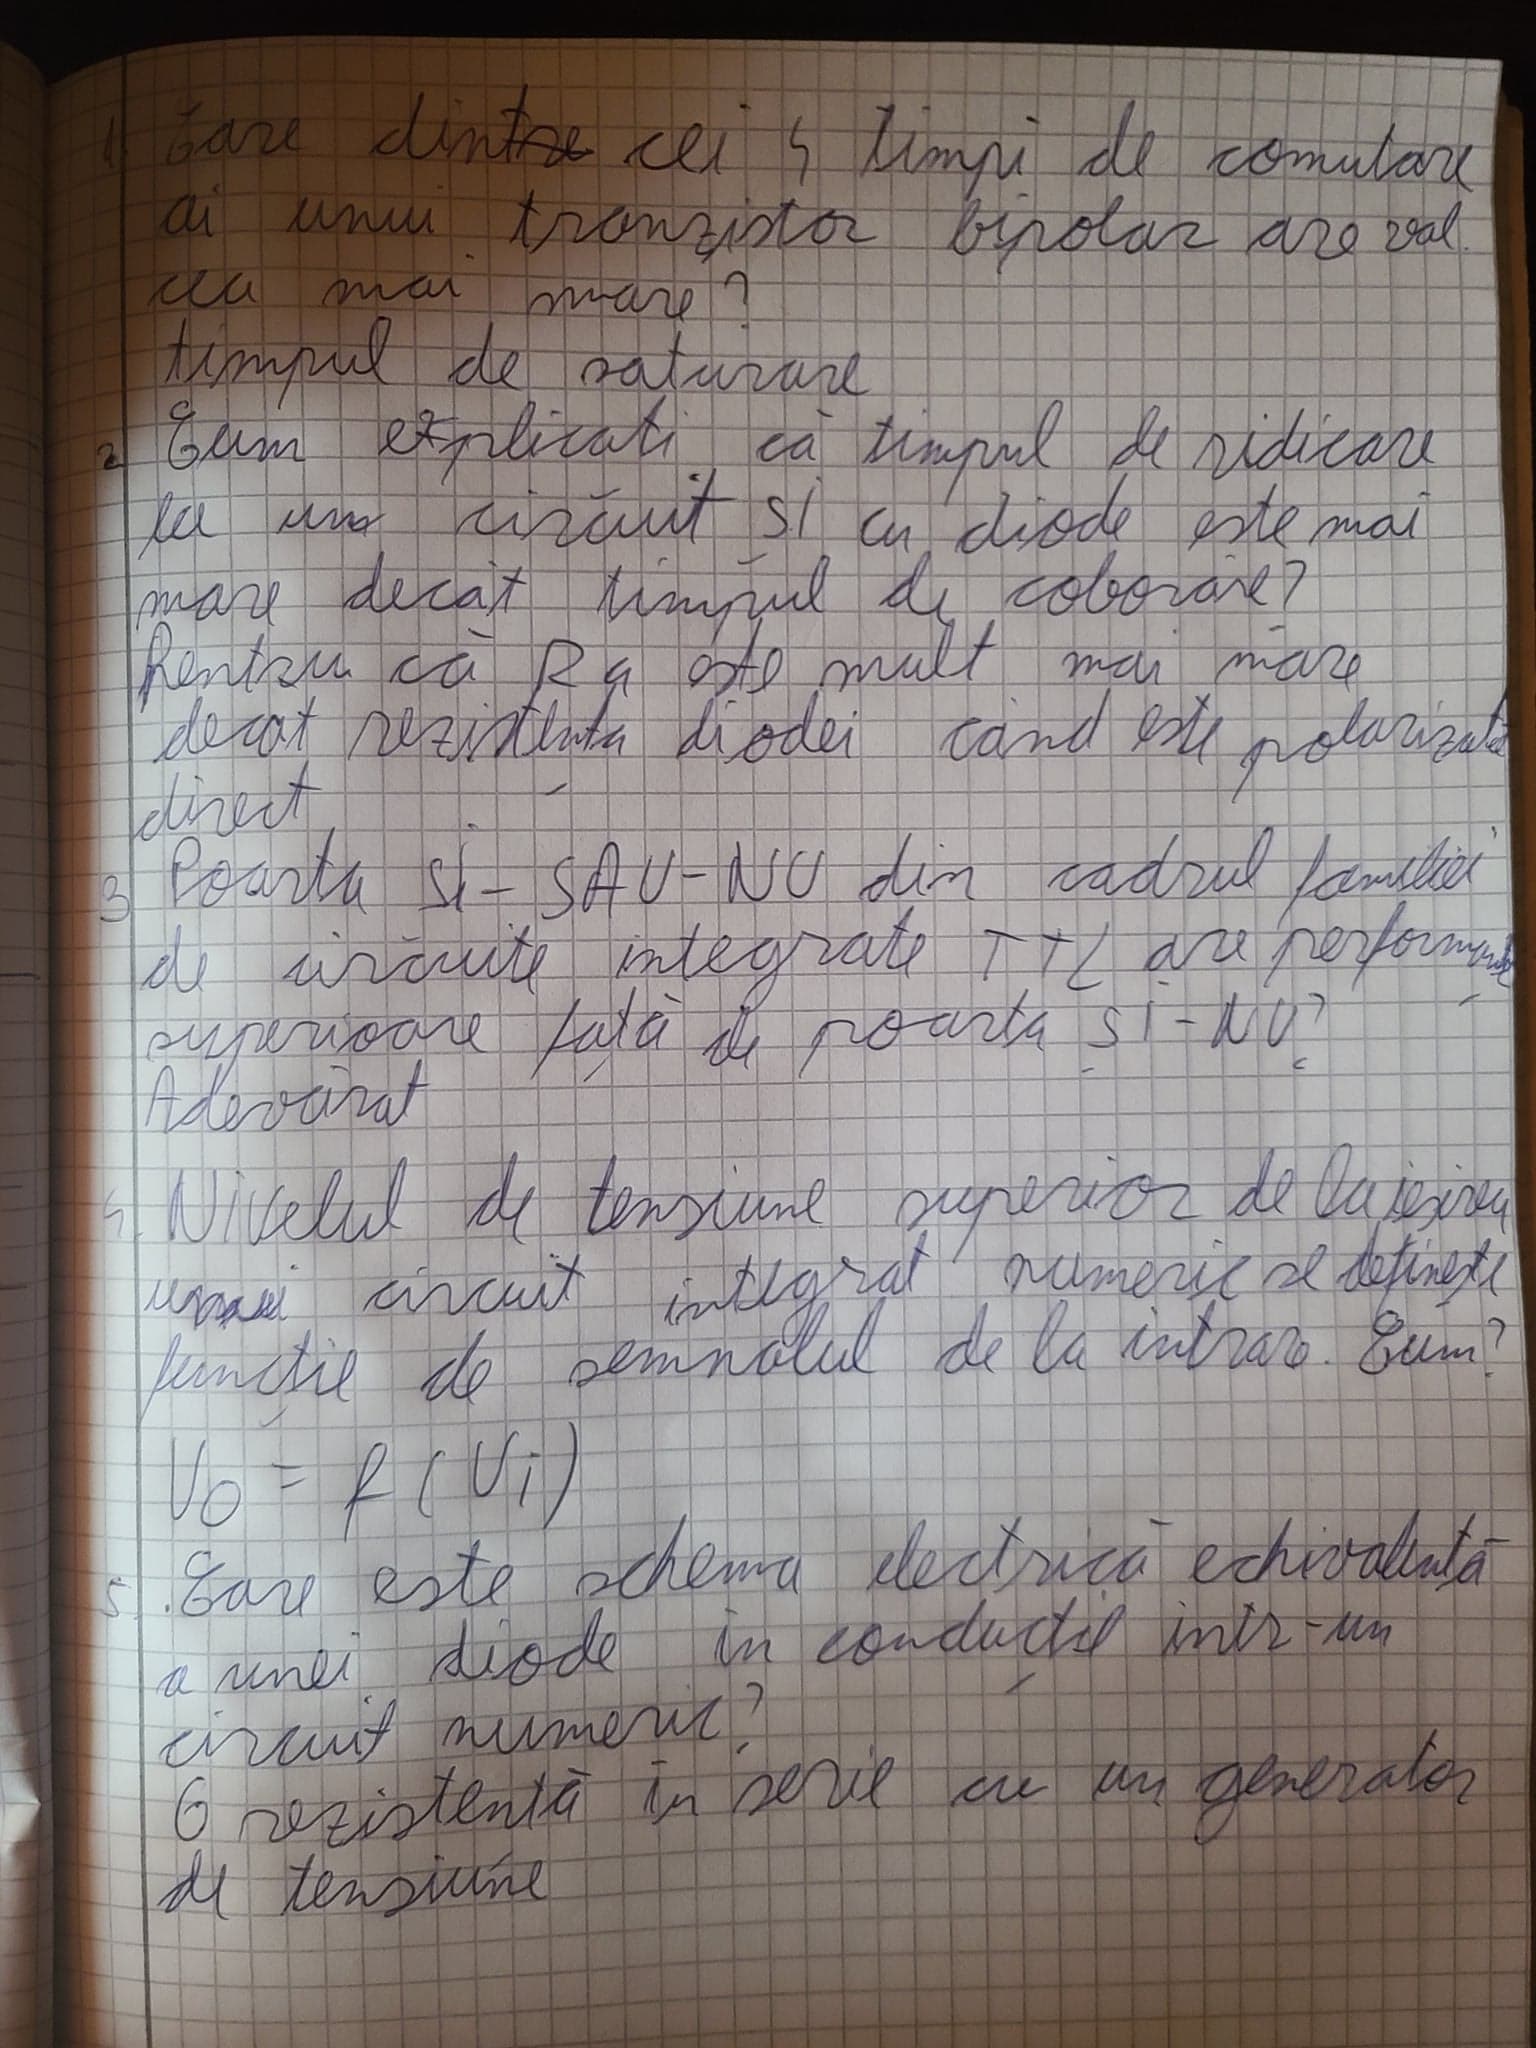 1. Care dintre cei 4 timpi de comutare
ai unui tranzistor bipolar are val.
cea mai mare?
timpul de saturare
2 Cum explicati că timpul de ridicare
la un circuit SI cu diode este mai
mare decât timpul de coborâre?
Pentru că Ra este mult mai mare
decat rezistenta diodei când este polarizată
direct
3 Poarta SI-SAU-NU din cadrul familiei
de circuite integrate TTL are performanțe
superioare față de poarta ȘI-NU?
Adevărat
4. Nivelul de tensiune superior de la ieșirea
unui circuit integrat numeric se definește
funcție de semnalul de la intrare. Cum?
Uo = f(Ui)
5. Care este schema electrică echivalentă
a unei diode în conducție intr-un
circuit numeric?
O rezistență în serie cu un generator
de tensiune